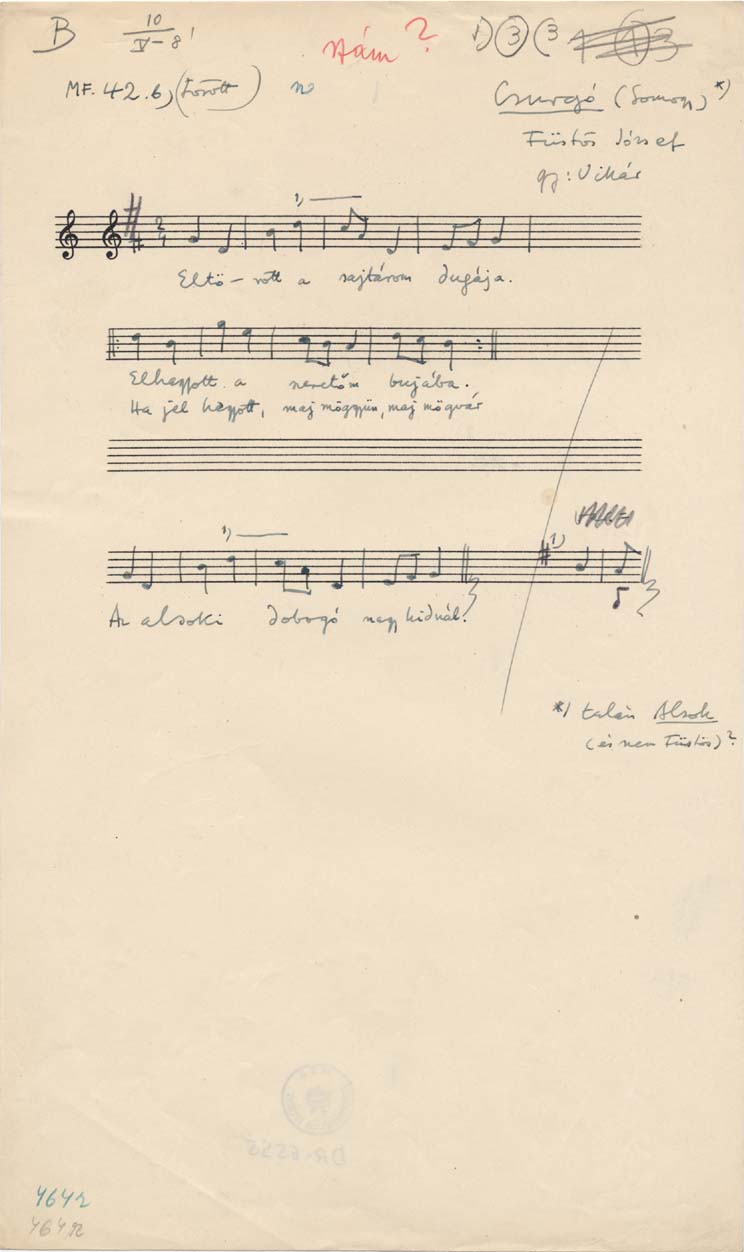 B 10/V-8 Nám? 1) 3 (3
MF. 42.6,) (törött) no
Csurgó (Somogy) *)
Füstös József
gy: Vikár
1)
2/4
Eltö- rött a sajtárom dugája.
Elhagyott a neretőm bujába.
Ha jel hagyott, maj möggyün, maj mögvár
1)
1)
5
Az alsoki dobogó nagy hidnál.
*) talán Alsok
(és nem Füstös)?
4642
4642